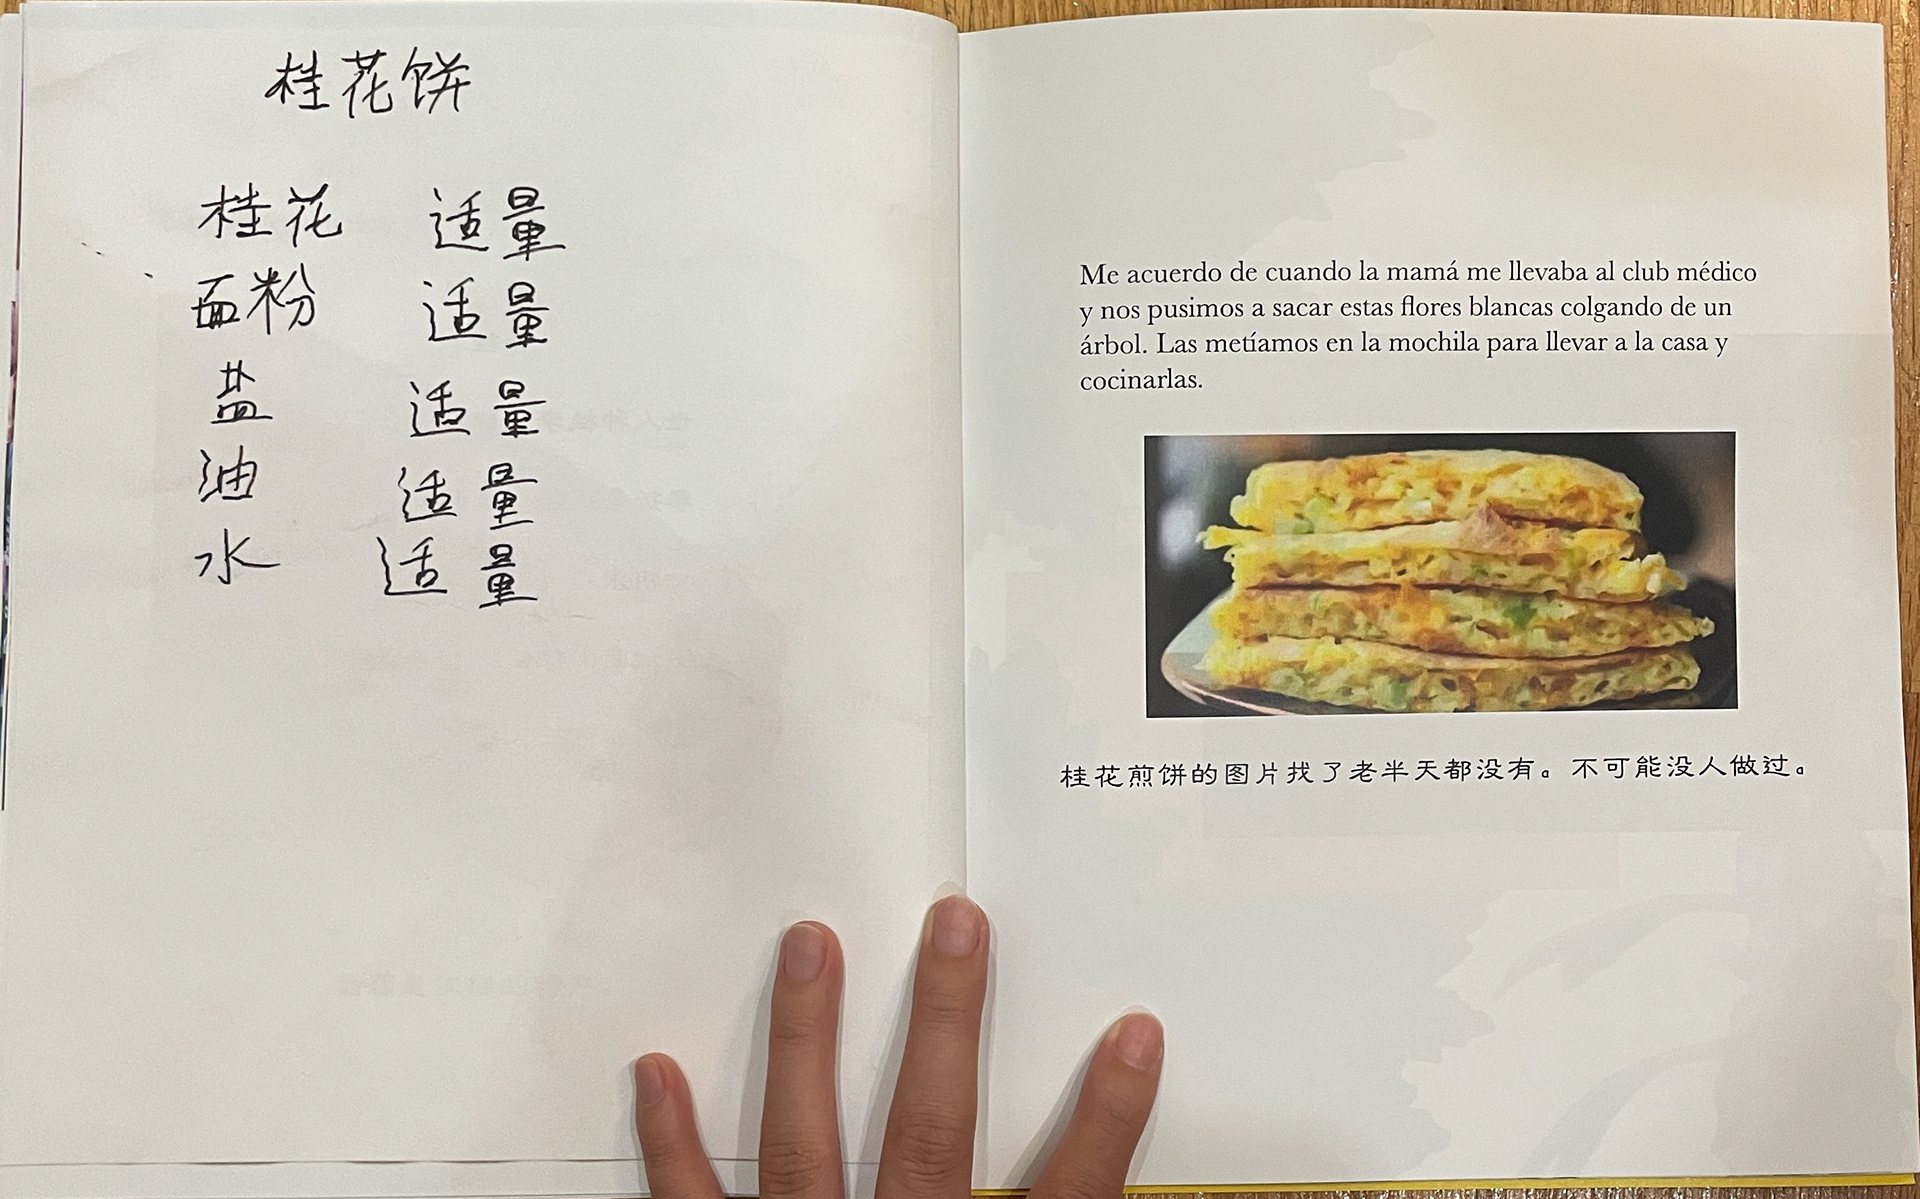 桂花饼
桂花 适量
面粉 适量
盐 适量
油 适量
水 适量
Me acuerdo de cuando la mamá me llevaba al club médico
y nos pusimos a sacar estas flores blancas colgando de un
árbol. Las metíamos en la mochila para llevar a la casa y
cocinarlas.
桂花煎饼的图片找了老半天都没有。不可能没人做过。